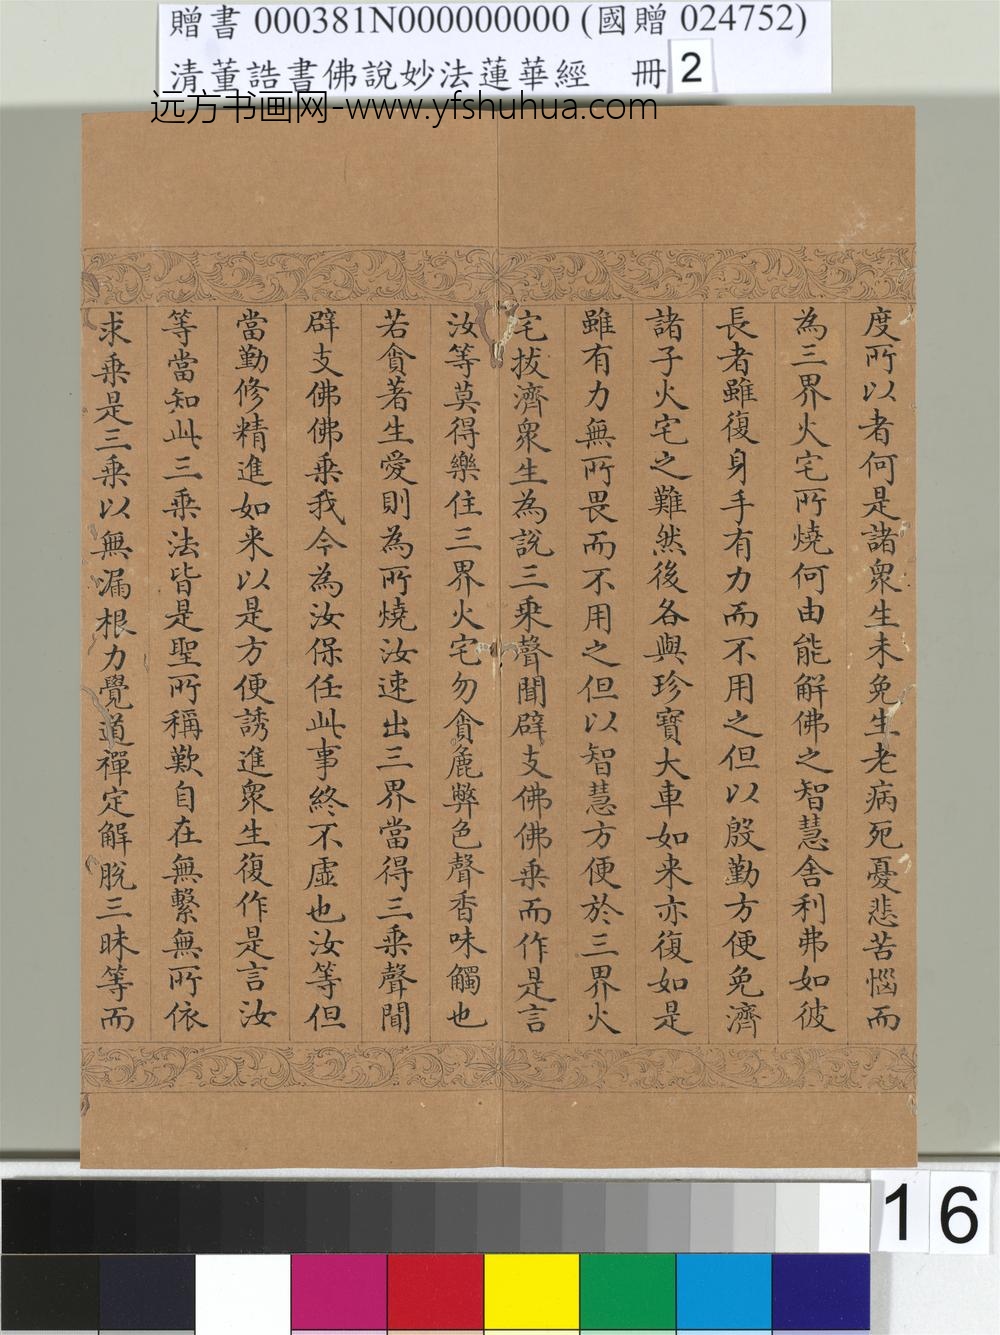 贈書 000381N000000000 (國贈 024752)
清董誥書佛說妙法蓮華經 冊 2
远方书画网-www.yfshuhua.com
度所以者何是諸衆生未免生老病死憂悲苦惱而
為三界火宅所燒何由能解佛之智慧舍利弗如彼
長者雖復身手有力而不用之但以殷勤方便免濟
諸子火宅之難然後各與珍寶大車如来亦復如是
雖有力無所畏而不用之但以智慧方便於三界火
宅拔濟衆生為說三乘聲聞辟支佛佛乗而作是言
汝等莫得樂住三界火宅勿貪麁弊色聲香味觸也
若貪著生愛則為所燒汝速出三界當得三乗聲聞
辟支佛佛乗我今為汝保任此事終不虛也汝等但
當勤修精進如来以是方便誘進衆生復作是言汝
等當知此三乗法皆是聖所稱歎自在無繫無所依
求乗是三乗以無漏根力覺道禪定解脫三昧等而
16